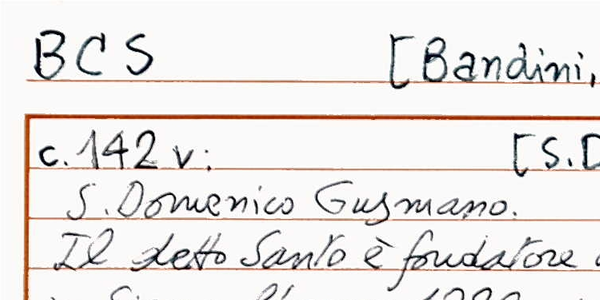 BCS [Bandini,
c. 142 v: [S.D
S. Domenico Gusmano.
Il detto Santo è fondatore